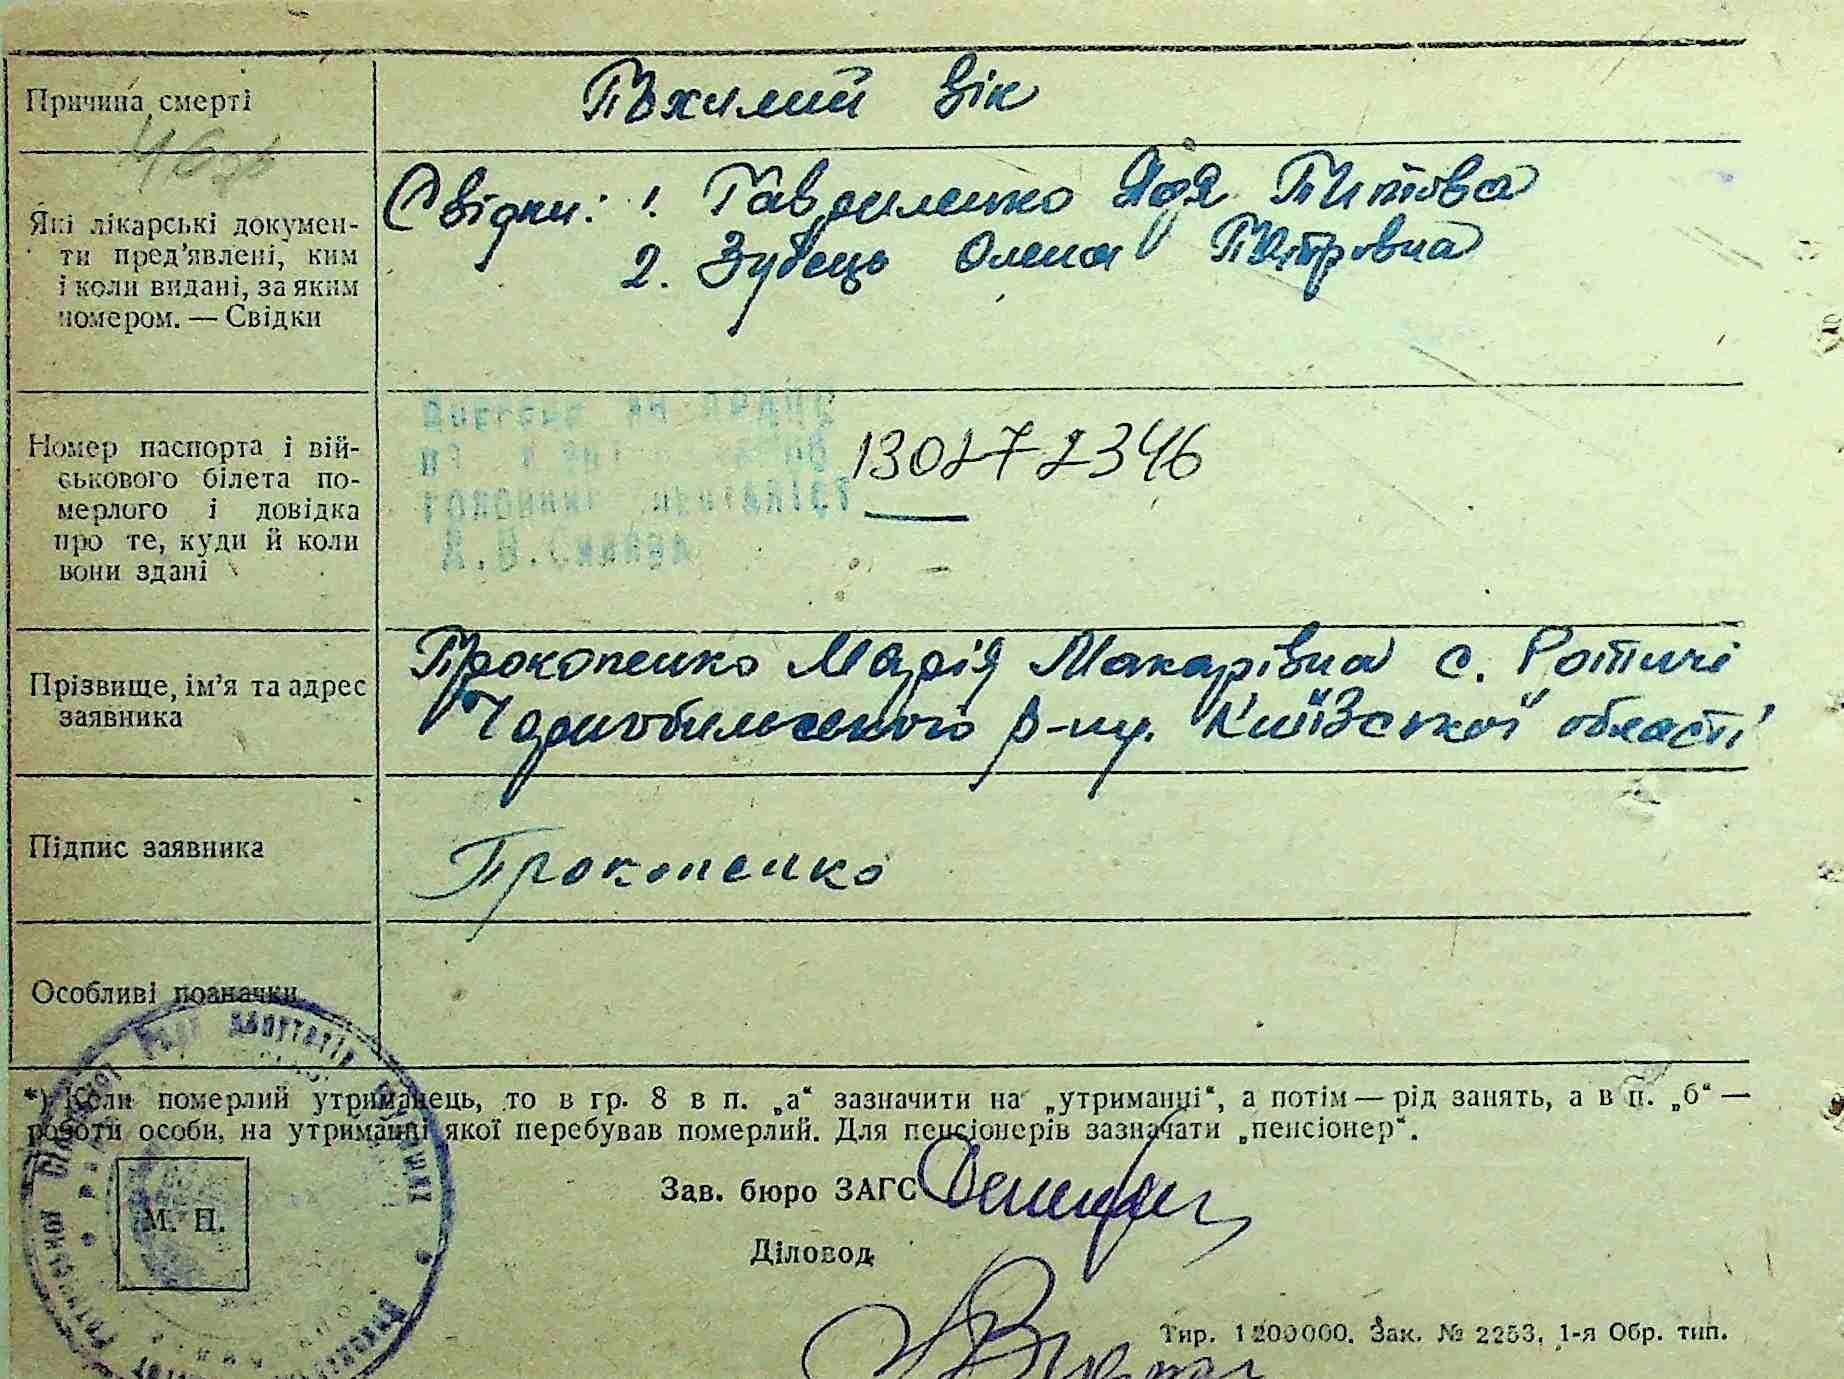 Причина смерті
Пхилий вік
Які лікарські докумен-
ти пред'явлені, ким
і коли видані, за яким
номером. — Свідки
Свідки: 1. Гавриленко Ядя Титовна
2. Зубець Олена Петровна
Номер паспорта і вій-
ськового білета по-
мерлого і довідка
про те, куди й коли
вони здані
130272346
Прізвище, ім'я та адрес
заявника
Прокопенко Марія Макарівна с. Ротичі
Чорнобильского р-ну. Київської області
Підпис заявника
Прокопенко
Особливі позначки
*) Коли померлий утриманець, то в гр. 8 в п. „а“ зазначити на „утриманці“, а потім — рід занять, а в п. „б“ —
роботи особи, на утриманні якої перебував померлий. Для пенсіонерів зазначати „пенсіонер“.
М. П.
Зав. бюро ЗАГС
Діловод
Тир. 1200000. Зак. № 2253. 1-я Обр. тип.